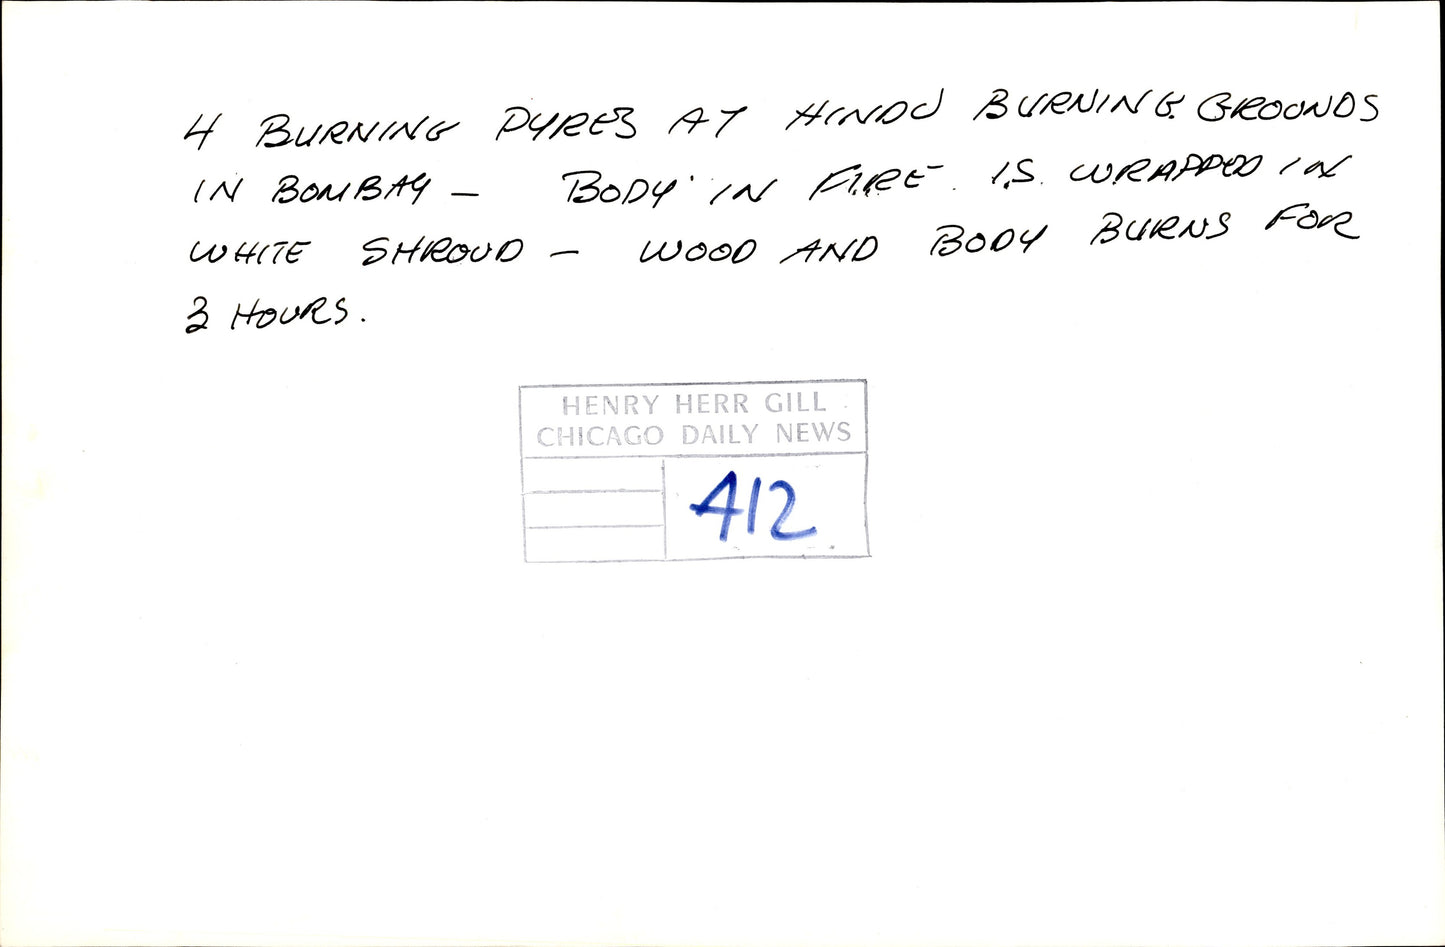 4 BURNING PYRES AT HINDU BURNING GROUNDS
IN BOMBAY – BODY IN FIRE IS WRAPPED IN
WHITE SHROUD – WOOD AND BODY BURNS FOR
3 HOURS.
HENRY HERR GILL
CHICAGO DAILY NEWS
412